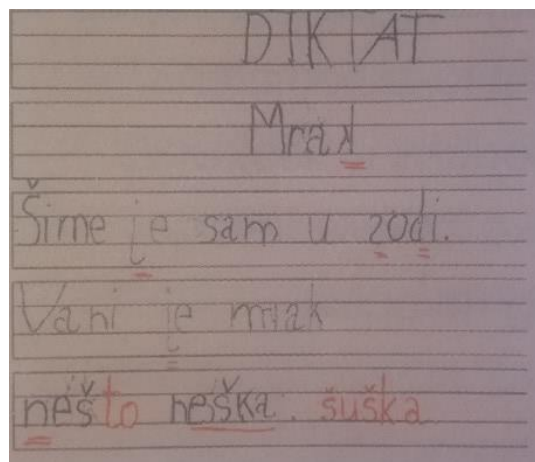 DIKTAT
Mrak
Šime je sam u zodi.
Vani je mrak
nešto neška. šuška